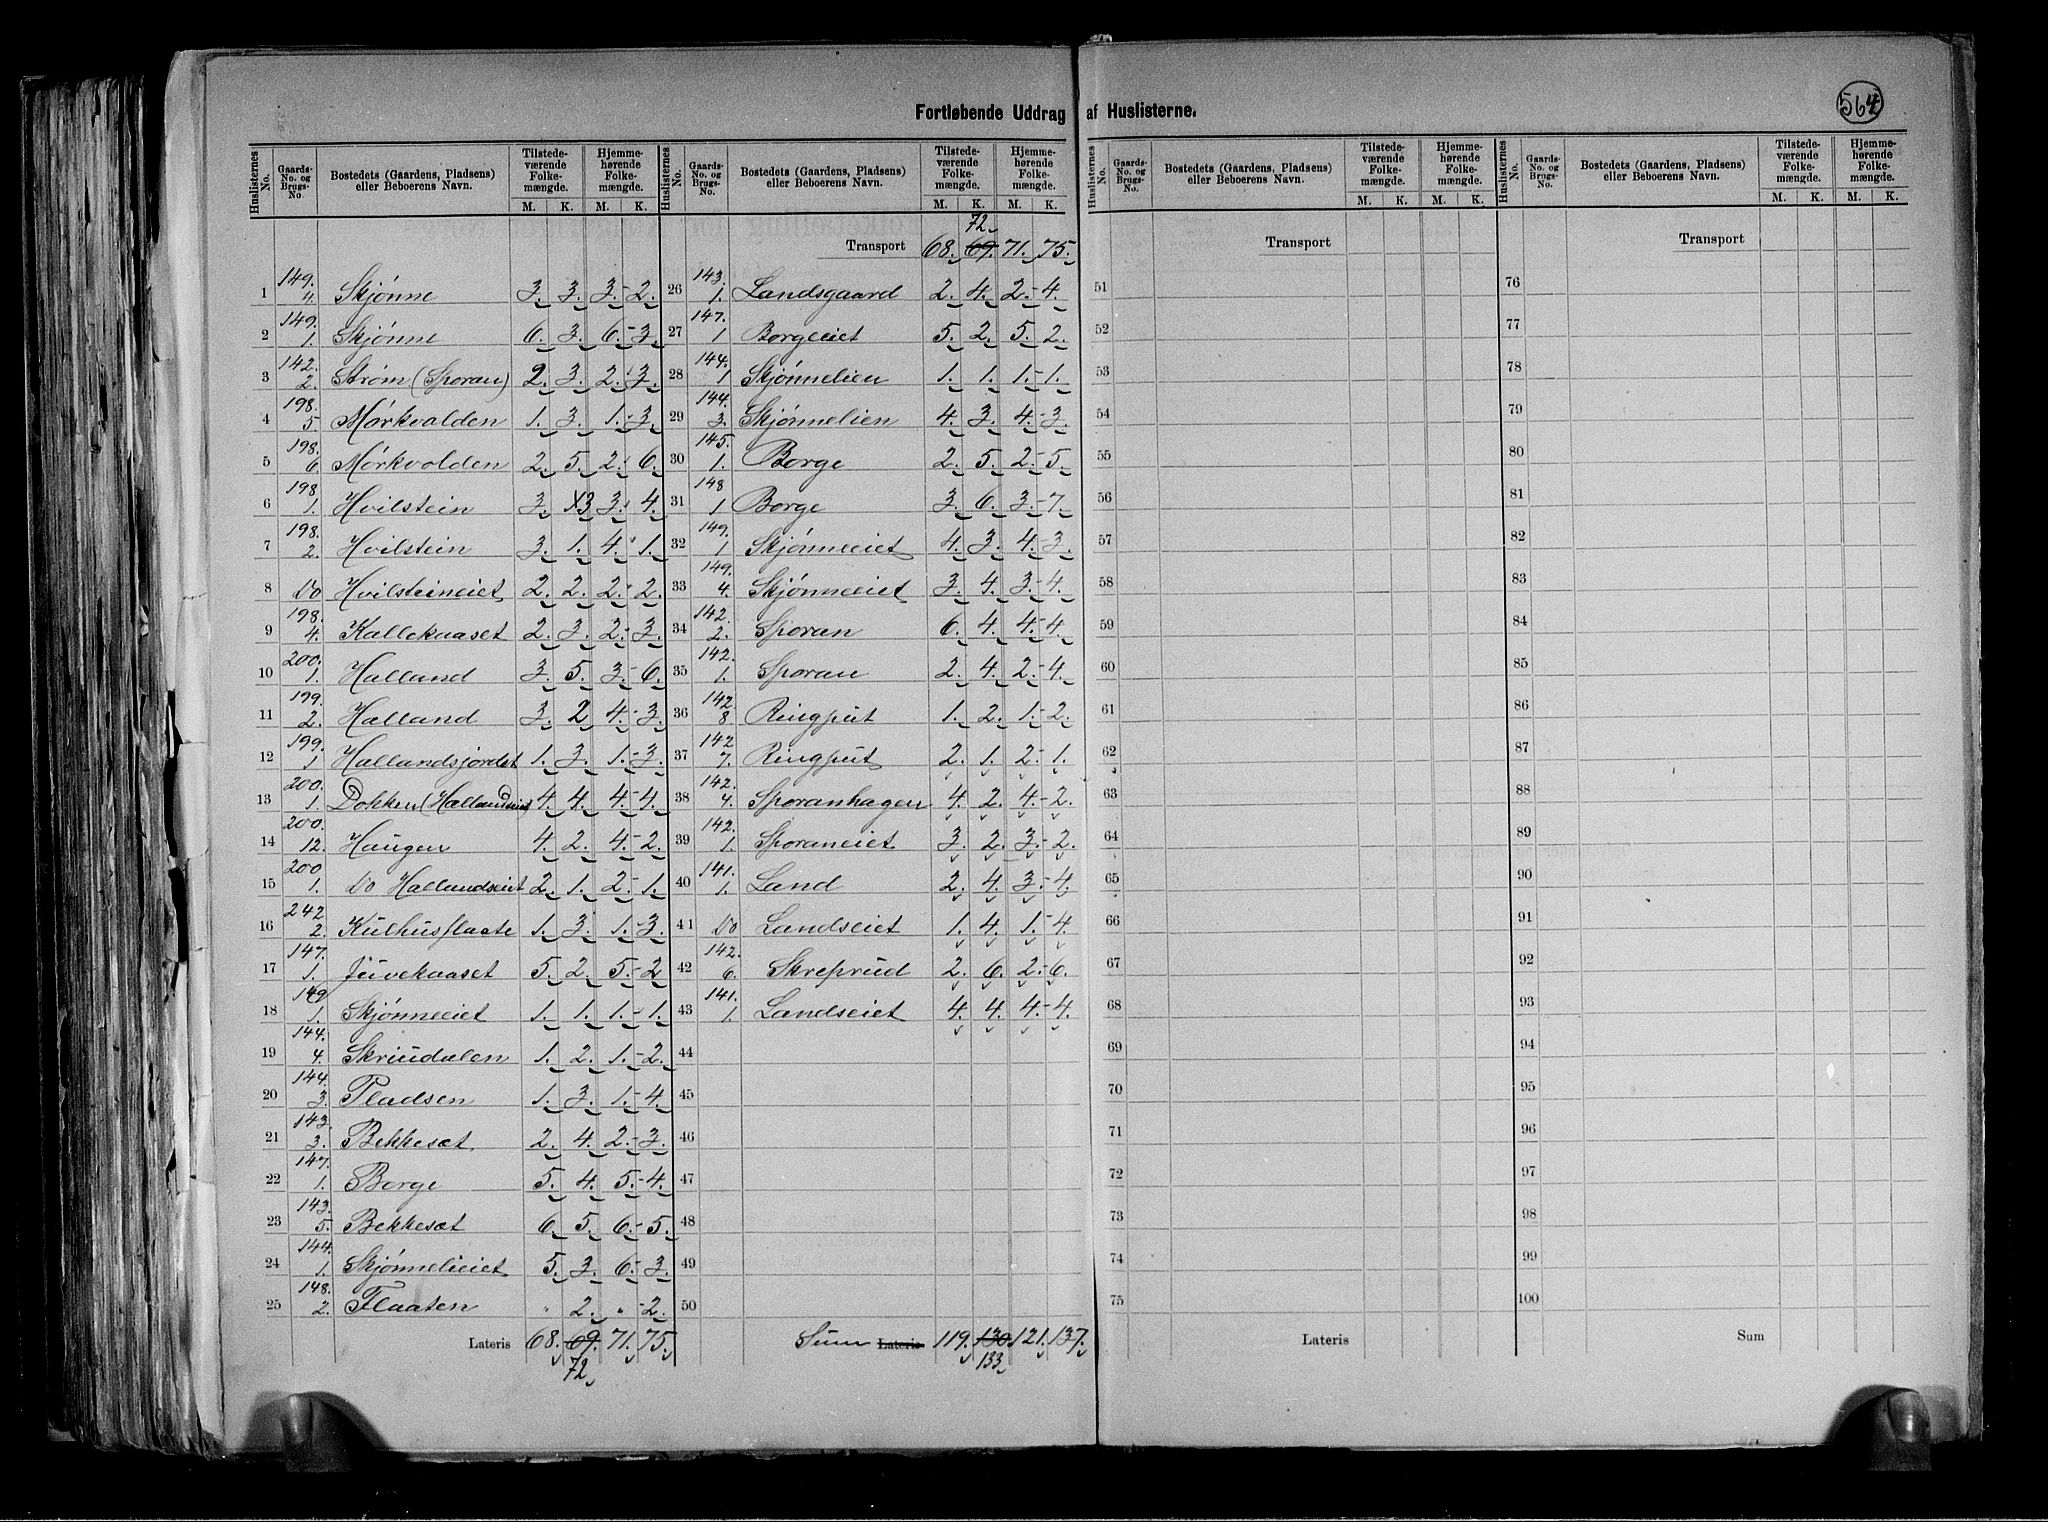 564
Fortløbende Uddrag af Huslisterne.
Huslisternes No. Gaards-No. og Brugs-No. Bostedets (Gaardens, Pladsens) eller Beboerens Navn. Tilstedeværende Folkemængde. M. K. Hjemmehørende Folkemængde. M. K.
1 149. 4. Skjønne 3. 3. 3. 2.
2 149. 1. Skjønne 6. 3. 6. 3.
3 142. 2. Strøm (Sporan) 2. 3. 2. 3.
4 198. 5 Mørkvolden 1. 3. 1. 3.
5 198. 6 Mørkvolden 2. 5. 2. 6.
6 198. 1. Hvilstein 3. 3 3. 4.
7 198. 2. Hvilstein 3. 1. 4. 1.
8 Do Hvilsteineiet 2. 2. 2. 2.
9 198. 4. Kallekaaset 2. 3. 2. 3.
10 200. 1. Halland 3. 5. 3. 6.
11 199. 2. Halland 3. 2 4. 3.
12 199. 1 Hallandsjordet 1. 3. 1. 3.
13 200. 1. Dokken (Hallandseiet) 4. 4. 4. 4.
14 200. 12. Haugen 4. 2. 4. 2.
15 200 1. Do Hallandseiet 2. 1. 2. 1.
16 242. 2. Kulhusflaate 1. 3. 1. 3.
17 147. 1. Juvekaaset 5. 2. 5. 2
18 149 1. Skjønneeiet 1. 1. 1. 1.
19 144. 4. Skriudalen 1. 2. 1. 2.
20 144. 3. Pladsen 1. 3. 1. 4.
21 143. 3. Bekkesæt. 2. 4. 2. 3.
22 147. 1. Borge 5. 4. 5. 4.
23 143. 5. Bekkesæt 6. 5. 6. 5.
24 144. 1. Skjønnelieiet 5. 3. 6. 3.
25 148. 2. Flaaten " 2. " 2.
Lateris 68. 69. 71. 75.
72
Huslisternes No. Gaards-No. og Brugs-No. Bostedets (Gaardens, Pladsens) eller Beboerens Navn. Tilstedeværende Folkemængde. M. K. Hjemmehørende Folkemængde. M. K.
72
Transport 68. 69. 71. 75.
26 143. 1. Landsgaard 2. 4. 2. 4.
27 147. 1 Borgeeiet 5. 2. 5. 2.
28 144. 1 Skjønnelien 1. 1. 1. 1.
29 144. 3. Skjønnelien 4. 3. 4. 3.
30 145. 1. Borge 2. 5. 2. 5.
31 148 1 Borge 3. 6. 3. 7.
32 149. 1 Skjønneeiet 4. 3. 4. 3.
33 149. 4. Skjønneeiet 3. 4. 3. 4.
34 142. 2. Sporan 6. 4. 4. 4.
35 142. 1. Sporan 2. 4. 2. 4.
36 142. 8 Ringput 1. 2. 1. 2.
37 142 7. Ringput 2. 1. 2. 1.
38 142. 4. Sporanhagen 4. 2. 4. 2.
39 142. 1. Sporaneiet 3. 2. 3. 2.
40 141. 1. Land 2. 4. 3. 4.
41 Do Landseiet 1. 4. 1. 4.
42 142. 6. Skreprud 2. 6. 2. 6.
43 141. 1. Landseiet 4. 4. 4. 4.
44
45
46
47
48
49
50
Sum Lateris 119. 130. 121. 137.
133.
Huslisternes No. Gaards-No. og Brugs-No. Bostedets (Gaardens, Pladsens) eller Beboerens Navn. Tilstedeværende Folkemængde. M. K. Hjemmehørende Folkemængde. M. K.
Transport
51
52
53
54
55
56
57
58
59
60
61
62
63
64
65
66
67
68
69
70
71
72
73
74
75
Lateris
Huslisternes No. Gaards-No. og Brugs-No. Bostedets (Gaardens, Pladsens) eller Beboerens Navn. Tilstedeværende Folkemængde. M. K. Hjemmehørende Folkemængde. M. K.
Transport
76
77
78
79
80
81
82
83
84
85
86
87
88
89
90
91
92
93
94
95
96
97
98
99
100
Sum